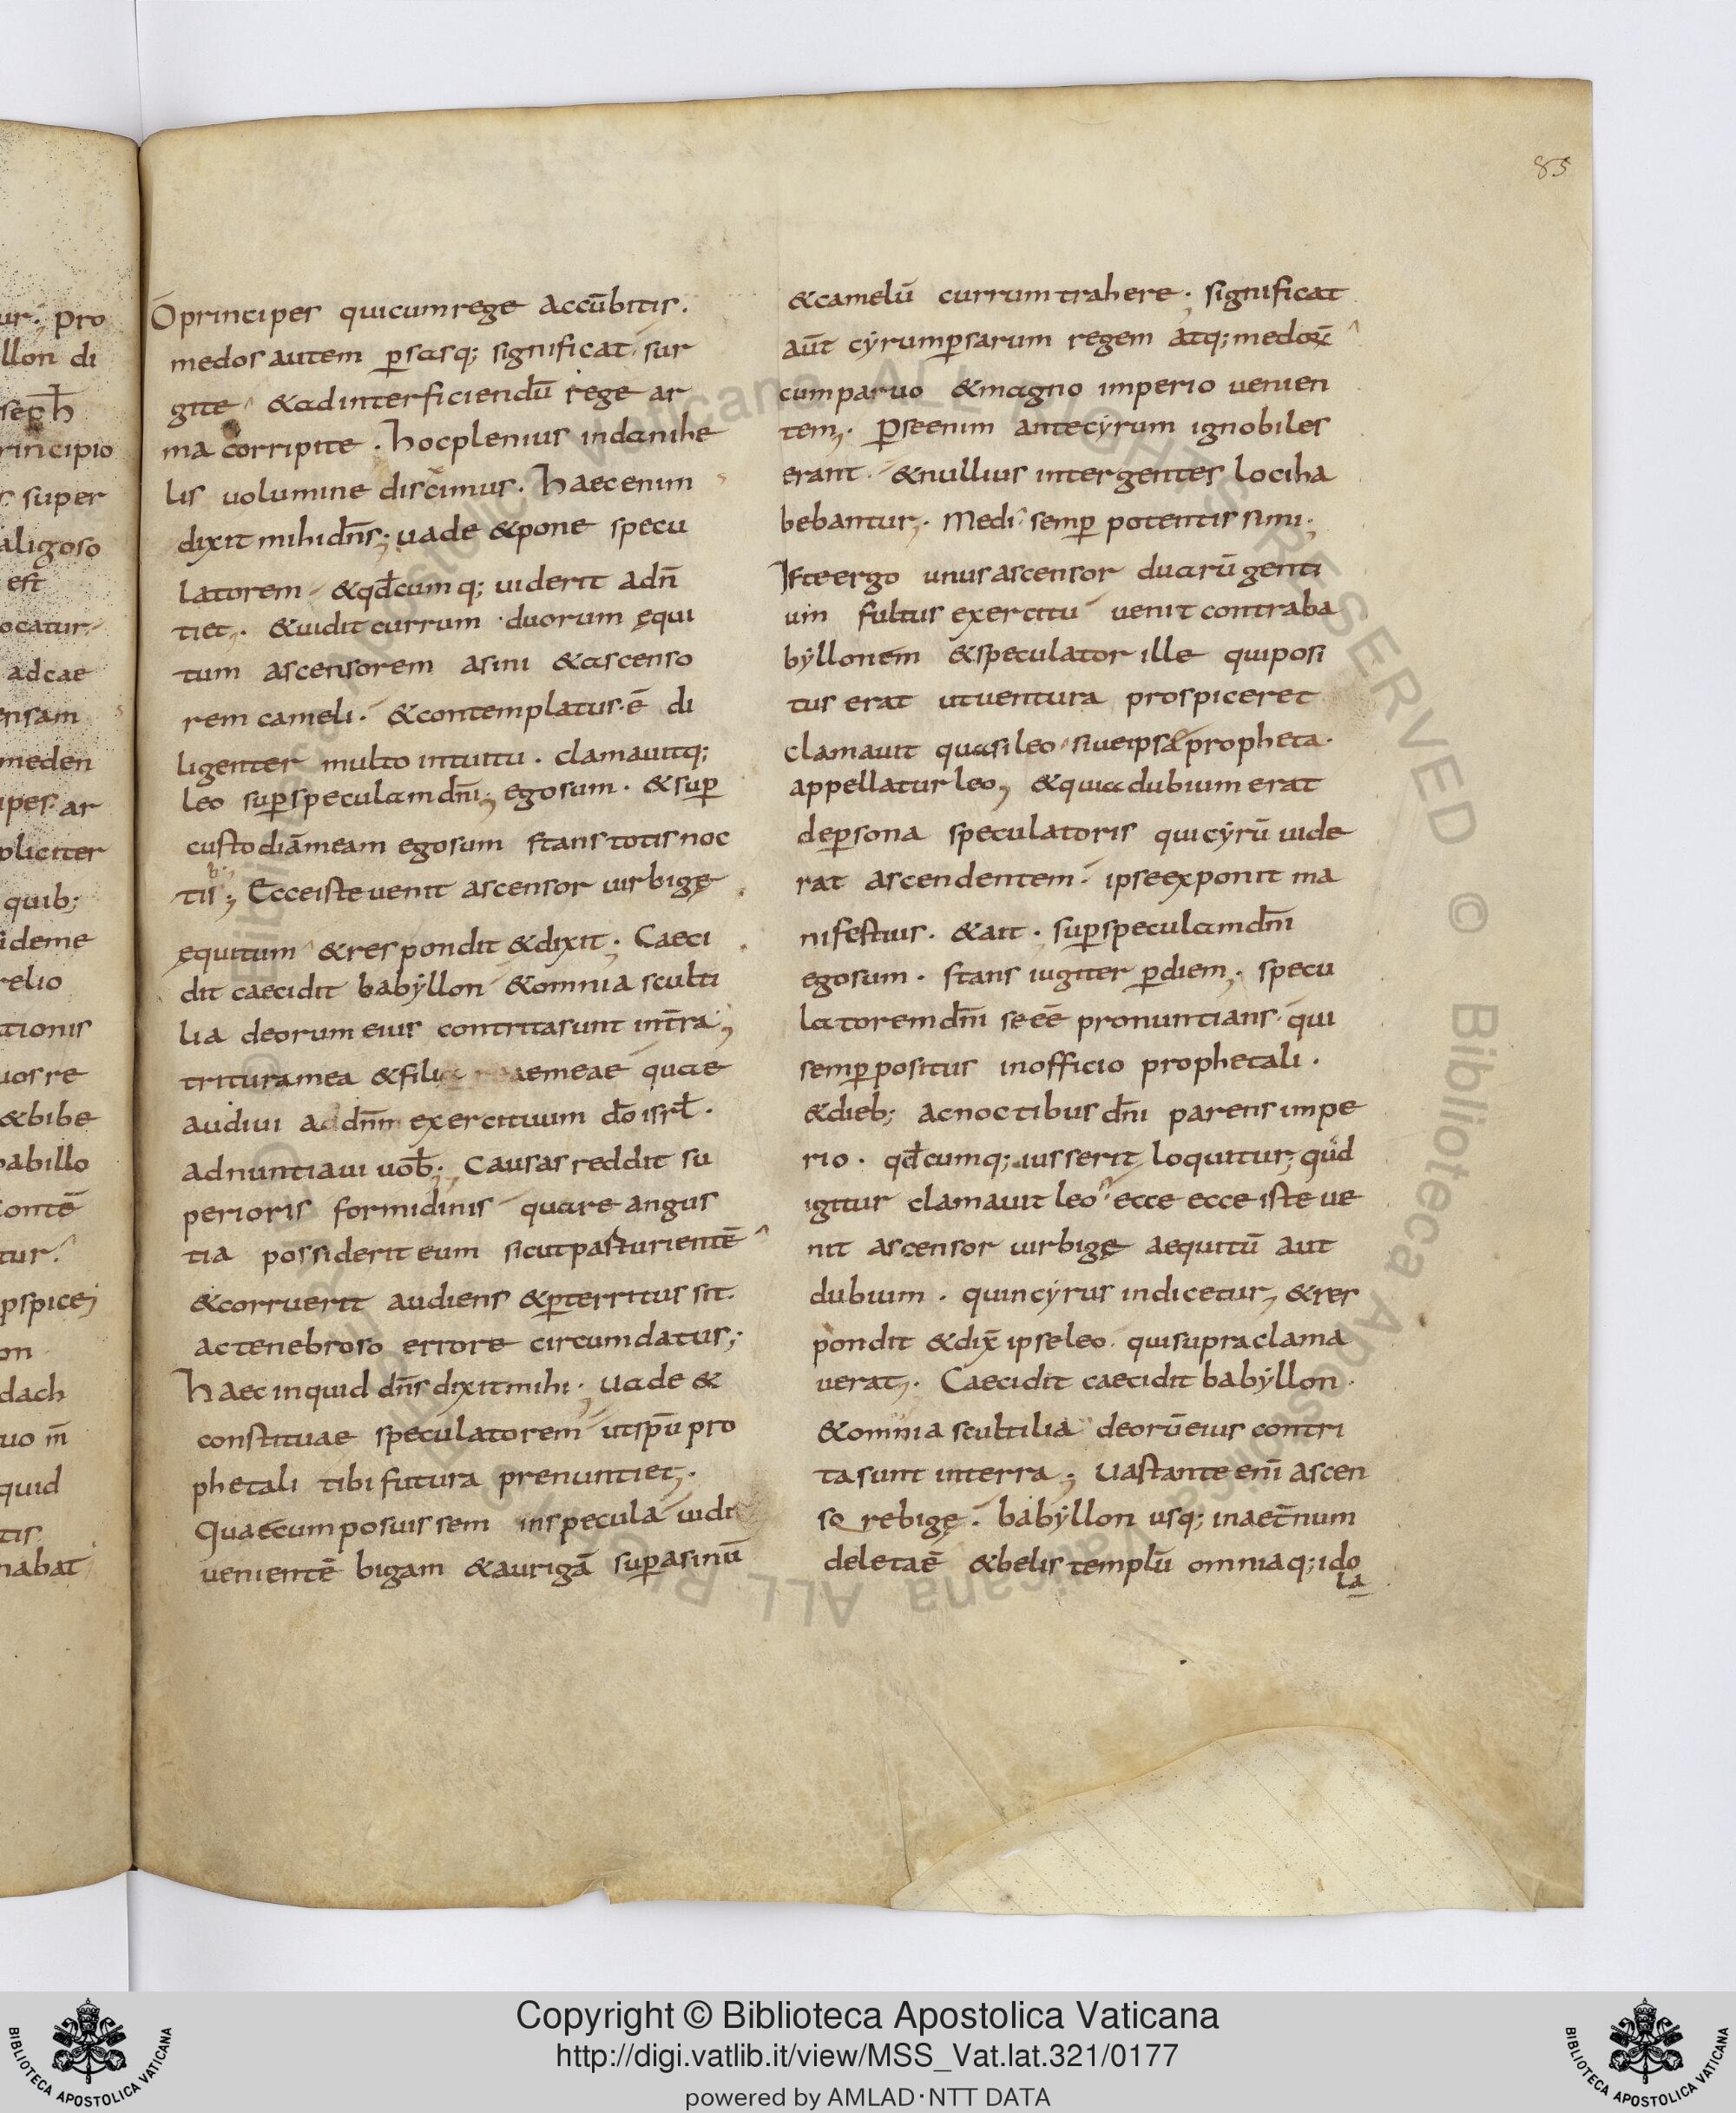 85
O principes qui cum rege accūbitis.
medos autem ꝑsasq; significat. sur
gite & ad interficiendū rege ar
ma corripite. hoc plenius in danihe
lis uolumine discimus. Haec enim
dixit mihi dn̄s; uade & pone specu
latorem & qđcumq; uiderit adn̄
tiet;. & uidit currum duorum ęqui
tum ascensorem asini & ascenso
rem cameli. & contemplatus ē di
ligenter multo intuitu. clamauitq;
leo suꝑ speculam dn̄i; ego sum. & suꝑ
custodiā meam ego sum stans totis noc
tib;; Ecce iste uenit ascensor uir bigę
ęquitum & respondit & dixit; Caeci
dit caecidit babyllon & omnia sculti
lia deorum eius contrita sunt in t̄ra;
tritura mea & filiae areae meae quae
audiui a dn̄m exercituum dō isrl̄.
adnuntiaui uob̄; Causas reddit su
perioris formidinis quare angus
tia possiderit eum sicut pasturientē
& corruerit audiens & ꝑterritus sit.
ac tenebroso errore circumdatus;
Haec inquid dn̄s dixit mihi; uade &
constituae speculatorem ut sp̄u pro
phetali tibi futura prenuntiet;.
Quaecum posuissem in specula uidi
uenientē bigam & aurigā suꝑ asinū
& camelū currum trahere; significat
aūt cyrum ꝑsarum regem atq; medoꝝ
cum paruo & magno imperio uenien
tem;. Ꝑse enim ante cyrum ignobiles
erant. & nullius inter gentes loci ha
bebantur;. Medi semꝑ potentissimi;
Iste ergo unus ascensor duarū genti
um fultus exercitu uenit contra ba
byllonem & speculator ille qui posi
tus erat ut uentura prospiceret
clamauit quasi leo siue ipsae propheta.
appellatur leo, & quia dubium erat
de ꝑsona speculatoris qui cyrū uide
rat ascendentem. ipse exponit ma
nifestius. & ait. suꝑ speculam dn̄i
ego sum. stans iugiter ꝑ diem;. specu
latorem dn̄i se eē pronuntians. qui
semꝑ positus in officio prophetali.
& dieb; ac noctibus dn̄i parens impe
rio. qđcumq; iusserit loquitur; quid
igitur clamauit leo ecce ecce iste ue
nit ascensor uir bigę aequitū aut
dubium. quin cyrus indicetur, & res
pondit & dix̄ ipse leo. qui supra clama
uerat;. Caecidit caecidit babyllon.
& omnia scultilia deorū eius contri
ta sunt in terra; Uastante enī ascen
so re bigę. babyllon usq; in aet̄num
deleta ē & belis templū omniaq; ido
la
Copyright © Biblioteca Apostolica Vaticana
http://digi.vatlib.it/view/MSS_Vat.lat.321/0177
powered by AMLAD·NTT DATA